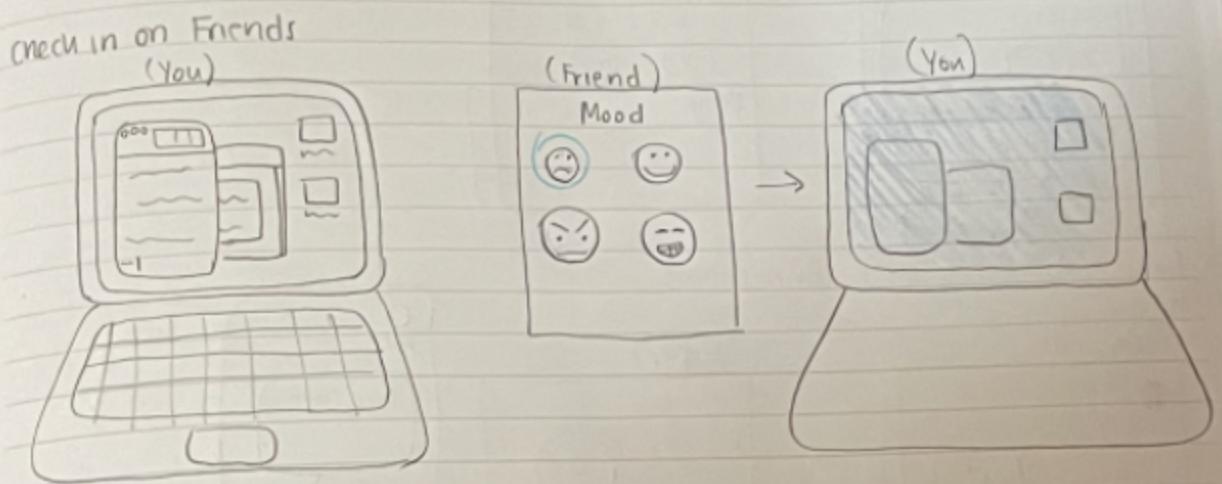 Check in on Friends
(You)
(Friend)
(You)
Mood